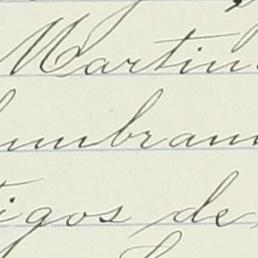 Martin
lumbram
tigos de